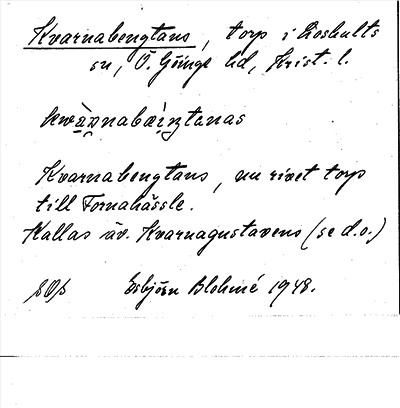 Kvarnabengtans, torp i Loshults
sn, Ö. Göinge hd, Krist. l.
kwànnabæ̀iŋtanas
Kvarnabengtans, nu rivet torp
till Fornahässle.
Kallas äv. Kvarnagustavens (se d.o.)
Esbjörn Blohmé 1948.